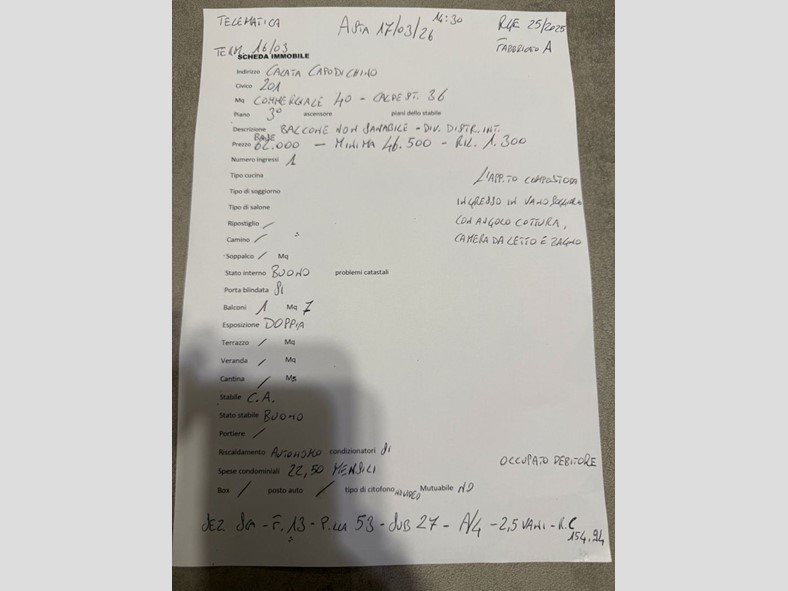 TELEMATICA ASTA 17/03/26 14:30 RGE 25/2025
TERM. 16/03 FABBRICATO A
SCHEDA IMMOBILE
Indirizzo CALATA CAPODICHINO
Civico 201
Mq COMMERCIALE 40 - CALPEST. 36
Piano 3° ascensore piani dello stabile
Descrizione BALCONE NON SANABILE - DIV. DISTR. INT.
Prezzo BASE 62.000 — MINIMA 46.500 - RIL. 1.300
Numero ingressi 1
Tipo cucina
L'APP.TO COMPOSTO DA
Tipo di soggiorno
INGRESSO IN VANO SOGGIORNO
Tipo di salone
Ripostiglio /
CON ANGOLO COTTURA,
Camino /
CAMERA DA LETTO E BAGNO
Soppalco / Mq
Stato interno BUONO problemi catastali
Porta blindata SI
Balconi 1 Mq 7
Esposizione DOPPIA
Terrazzo / Mq
Veranda / Mq
Cantina / Mq
Stabile C.A.
Stato stabile BUONO
Portiere /
Riscaldamento AUTONOMO condizionatori SI
OCCUPATO DEBITORE
Spese condominiali 22,50 MENSILI
Box / posto auto / tipo di citofono NO VIDEO Mutuabile NO
SEZ. - F. 13 - P.LLA 53 - SUB 27 - A/4 - 2,5 VANI - R.C
154,94